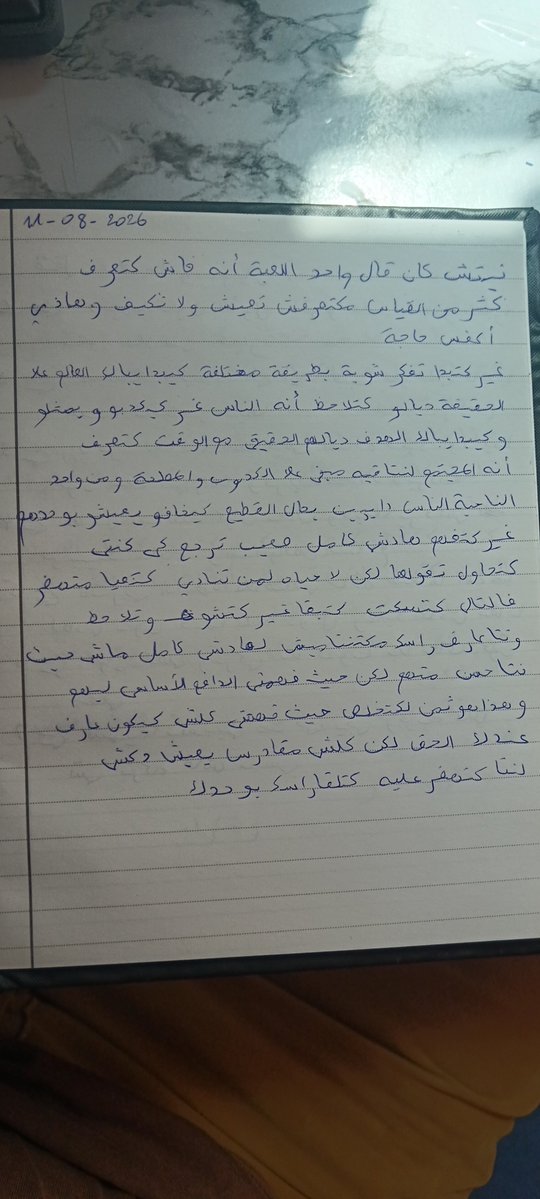 11-08-2026
نيتش كان قال واحد اللعبة أنه فاش كتعرف
كثر من القياس مكتعرفش تعيش ولا تكيف وهادي
أكفس حاجة
غير كتبدا تفكر شوية بطريقة مختلفة كيبدا يبالك العالم علا
الحقيقة ديالو كتلاحظ أنه الناس غير كيكدبو و يمتلو
وكيبدا يبالك الهدف ديالهم الحقيقي مع الوقت كتعرف
أنه المجتمع لنتا فيه مبني علا الكدوب والمصلحة ومن واحد
الناحية الناس دايرين بحال القطيع كيخافو يعيشو بوحدهم
غير كتفهم هادشي كامل صعيب ترجع كي كنتي
كتحاول تقولها لكن لا حياة لمن تنادي كتعيا متهضر
فالتالي كتسكت كتبقا غير كتشوف وتلاحظ
ونتا عارف راسك مكتنتاميش لهادشي كامل ماشي حيت
نتا حسن منهم لكن حيث فهمتي الدافع الأساسي ليهم
وهدا هو ثمن لكتخلص حيث فهمتي كلشي كيكون عارف
عندك الحق لكن كلشي مقادرش يعيش داكشي
لنتا كتهضر عليه كتلقا راسك بوحدك